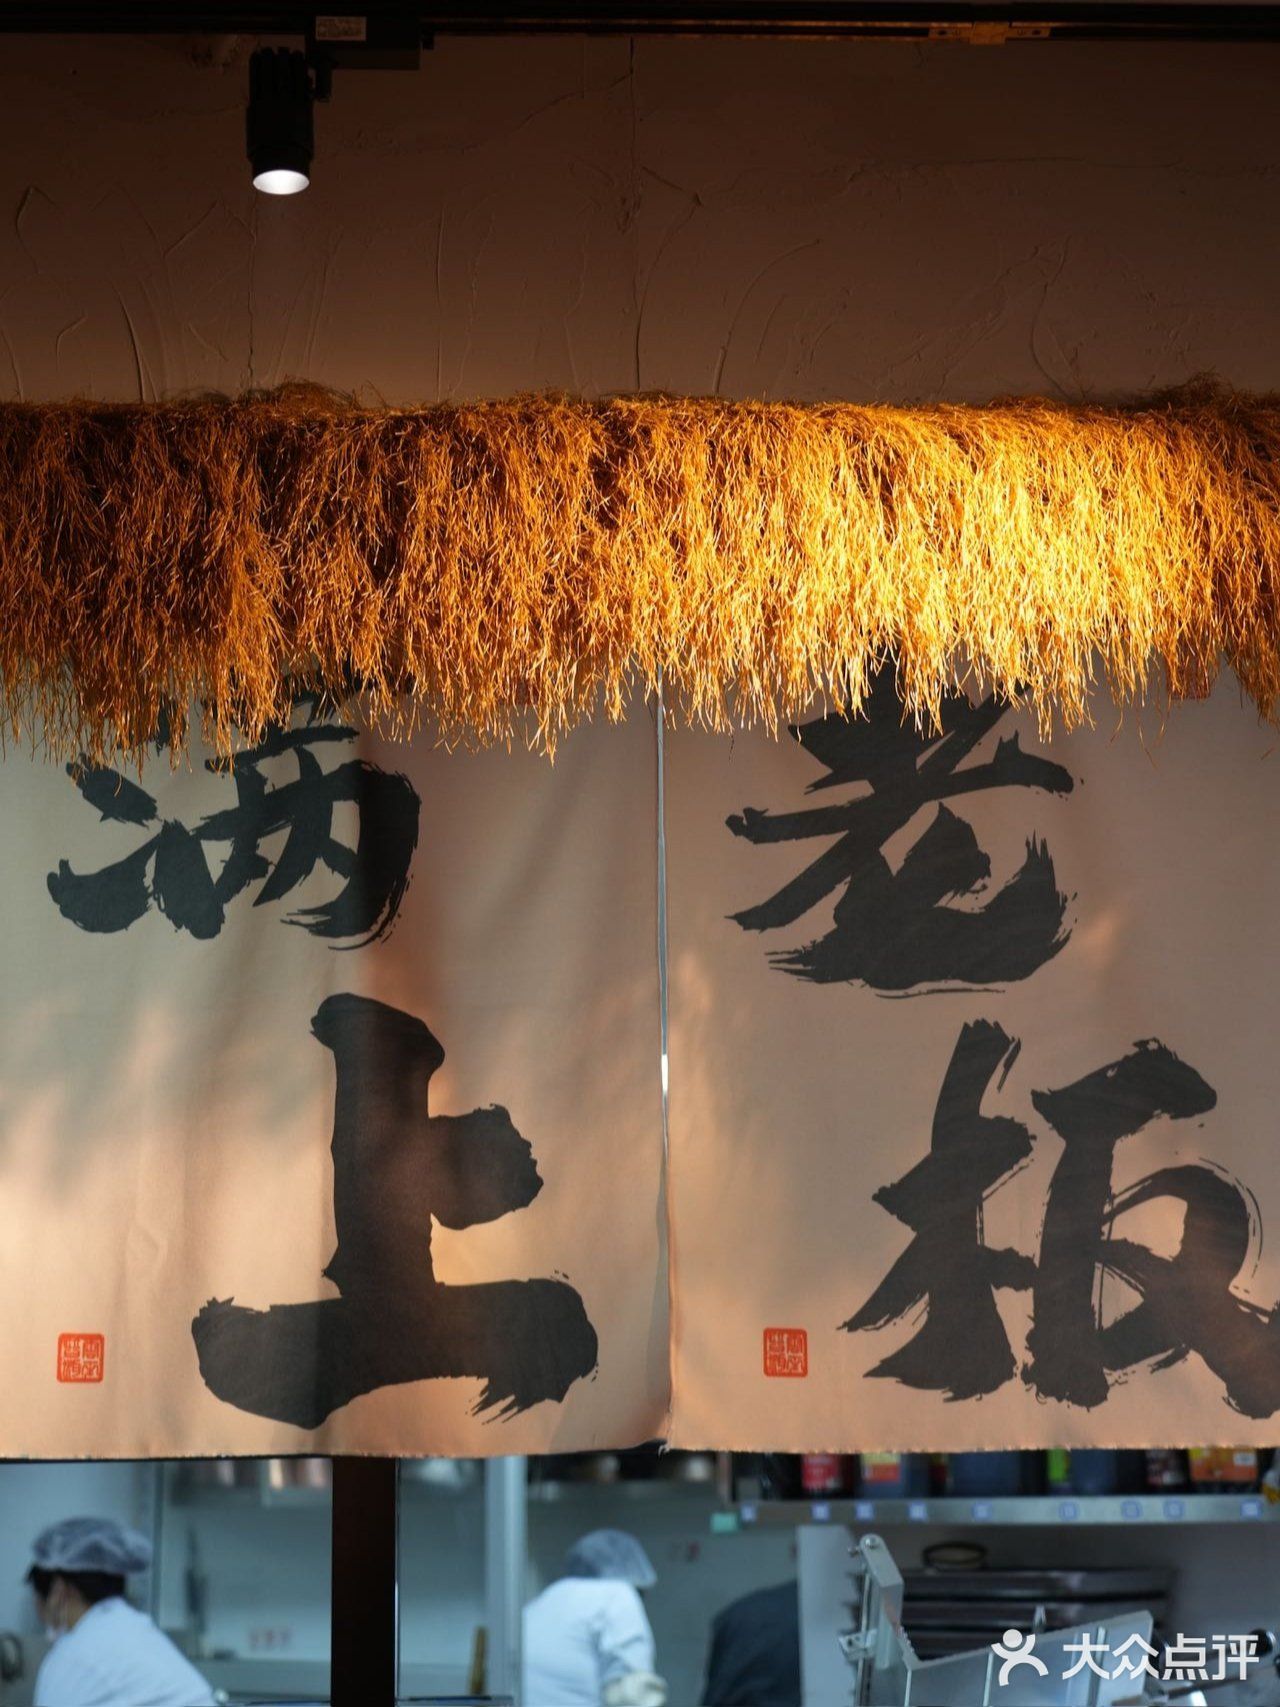 老板
满上
大众点评